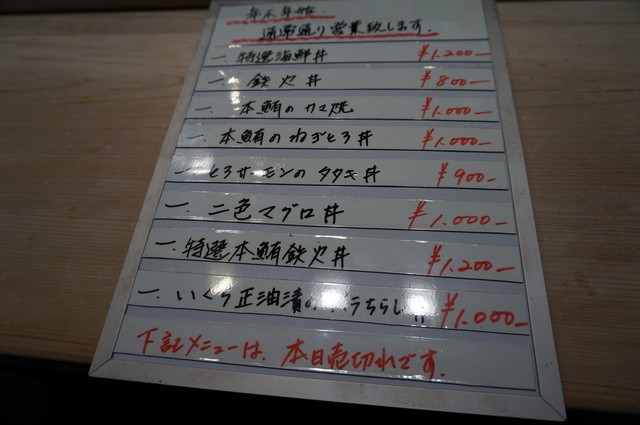 年末年始
通常通り営業致します。
一. 特選海鮮丼 ¥1.200-
一. 鉄火丼 ¥800-
一. 本鮪のカマ焼 ¥1.000-
一. 本鮪のねぎとろ丼 ¥1.000-
一. とろサーモンのタタキ丼 ¥900-
一. 二色マグロ丼 ¥1.000-
一. 特選本鮪鉄火丼 ¥1.200-
一. いくら正油漬の ちらし丼 ¥1.000-
下記メニューは、本日売切れです。